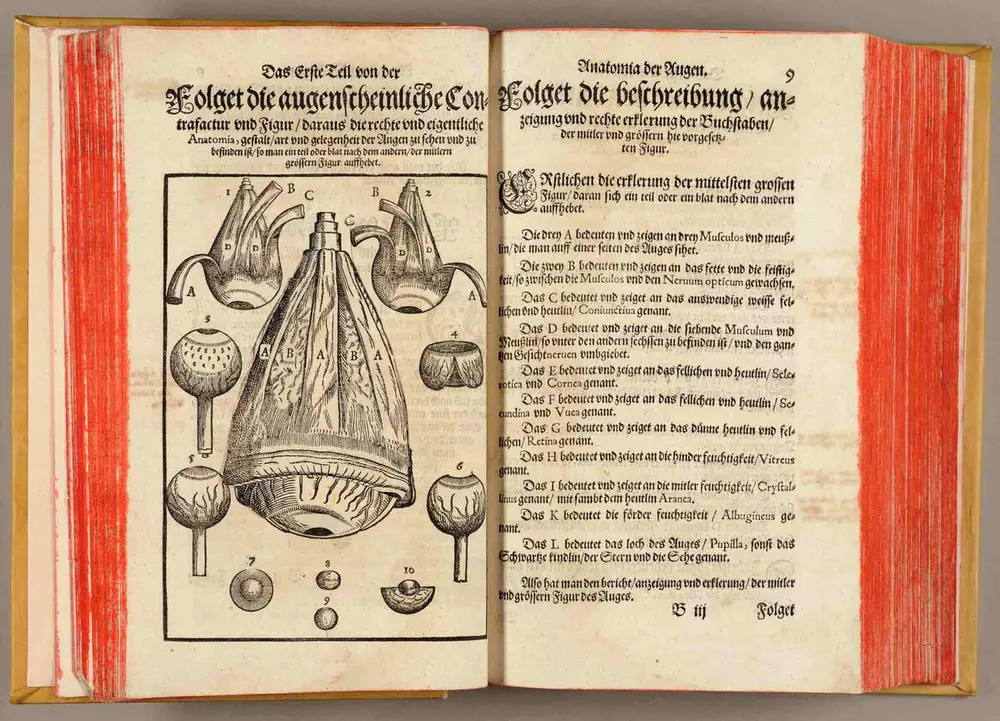 Das Erste Teil von der
Folget die augenscheinliche Con-
trafactur vnd Figur / daraus die rechte vnd eigentliche
Anatomia, gestalt / art vnd gelegenheit der Augen zu sehen vnd zu
befinden ist / so man ein teil oder blat nach dem andern / der mitlern
grössern Figur auffhebet.
1 B C B 2
C
D D D D
A A
3 4
A B A B A
5 6
7 8 10
9
Anatomia der Augen. 9
Folget die beschreibung / an-
zeigung vnd rechte erklerung der Buchstaben /
der mitler vnd grössern hie vorgesetz-
ten Figur.
ERstlichen die erklerung der mittelsten grossen
Figur / daran sich ein teil oder ein blat nach dem andern
auffhebet.
Die drey A bedeuten vnd zeigen an drey Musculos vnd meuß-
lin / die man auff einer seiten des Auges sihet.
Die zwey B bedeuten vnd zeigen an das fette vnd die feistig-
keit / so zwischen die Musculos vnd den Neruum opticum gewachsen.
Das C bedeutet vnd zeiget an das auswendige weisse fel-
lichen vnd heutlin / Coniunctiua genant.
Das D bedeutet vnd zeiget an die siebende Musculum vnd
Meußlin / so vnter den andern sechssen zu befinden ist / vnd den gan-
tzen Gesichtneruen vmbgiebet.
Das E bedeutet vnd zeiget an das fellichen vnd heutlin / Scle-
rotica vnd Cornea genant.
Das F bedeutet vnd zeiget an das fellichen vnd heutlin / Se-
cundina vnd Vuea genant.
Das G bedeutet vnd zeiget an das dünne heutlin vnd fel-
lichen / Retina genant.
Das H bedeutet vnd zeiget an die hinder feuchtigkeit / Vitreus
genant.
Das I bedeutet vnd zeiget an die mitler feuchtigkeit / Crystal-
linus genant / mit sambt dem heutlin Aranea.
Das K bedeutet die förder feuchtigkeit / Albugineus ge-
nant.
Das L bedeutet das loch des Auges / Pupilla, sonst das
Schwartze kindlin / der Stern vnd die Sehe genant.
Also hat man den bericht / anzeigung vnd erklerung / der mitler
vnd grössern Figur des Auges.
B iij Folget